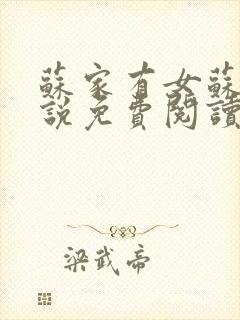 蘇家有女蘇
說免費閱讀
梁武帝